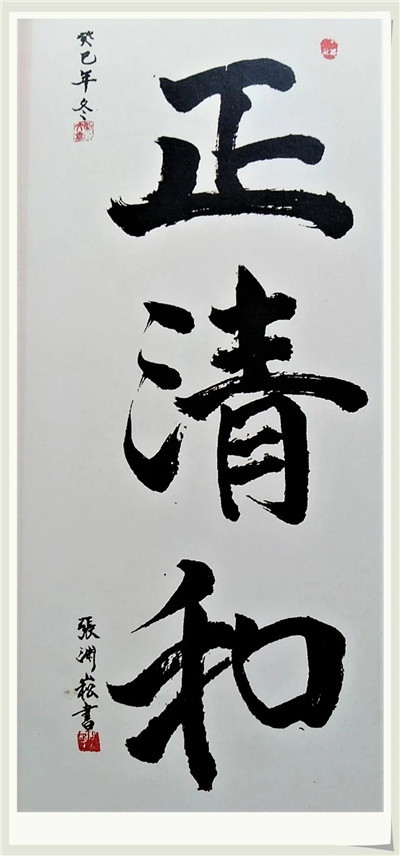 正清和
癸巳年冬
張渊崧書